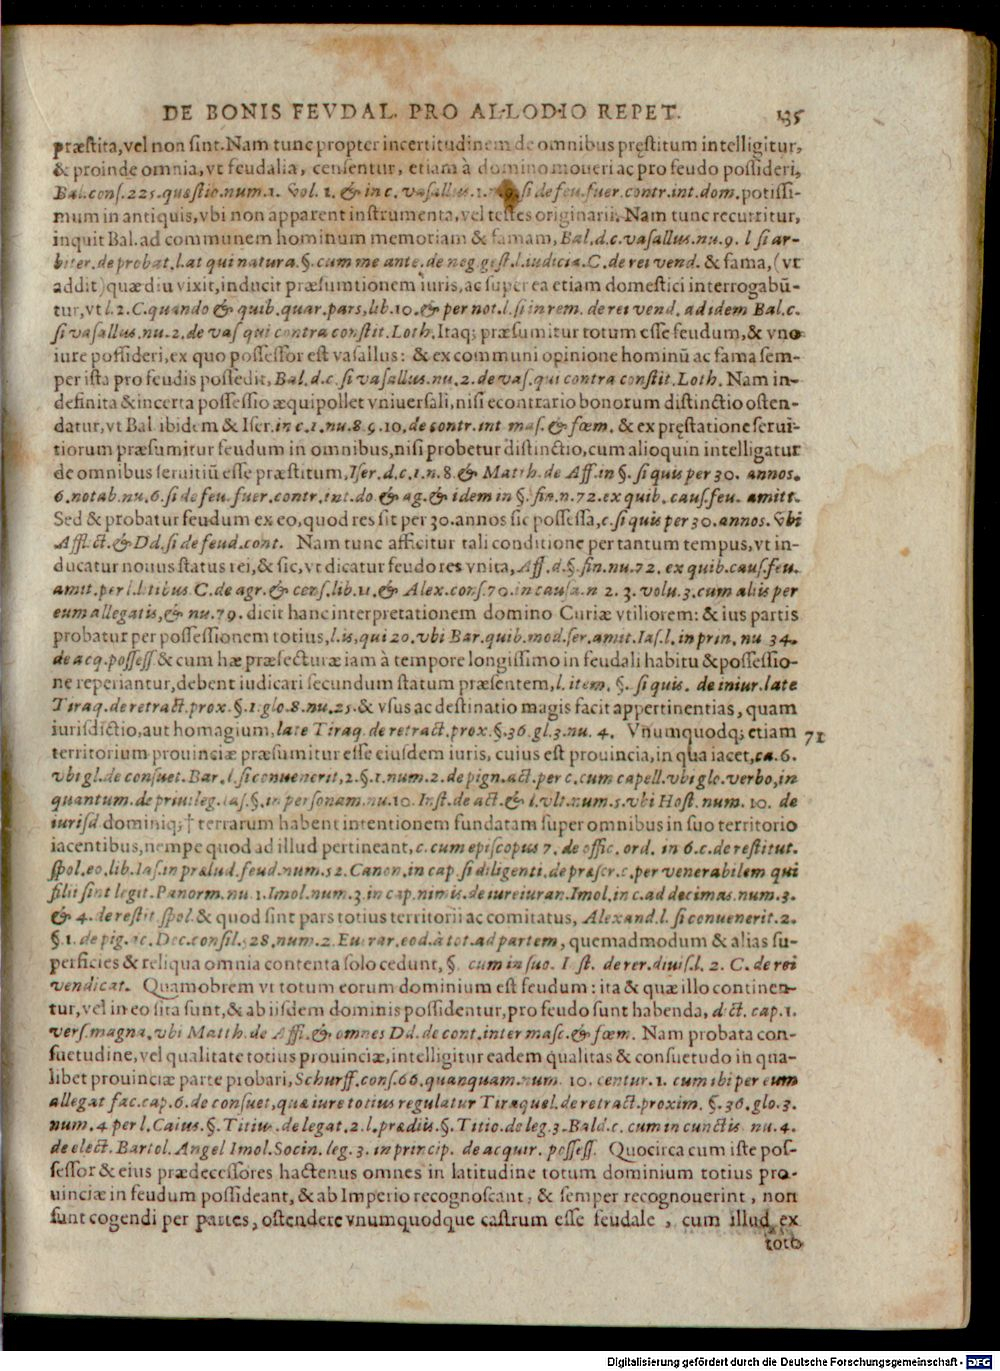 DE BONIS FEVDAL. PRO ALLODIO REPET. 135
præstita, vel non sint. Nam tunc propter incertitudinem de omnibus pręstitum intelligitur,
& proinde omnia, vt feudalia, censentur, etiam à domino moueri ac pro feudo possideri,
Bal. cons. 225. quæstio. num. 1. Vol. 1. & in c. vasallus. 1. si de feu. fuer. contr. int. dom. potissi-
mum in antiquis, vbi non apparent instrumenta, vel testes originarii. Nam tunc recurritur,
inquit Bal. ad communem hominum memoriam & famam, Bal. d. c. vasallus. nu. 9. l si ar-
biter. de probat. l. at qui natura. §. cum me ante. de neg. gest. l. iudicia. C. de rei vend. & fama, (vt
addit) quædiu vixit, inducit præsumtionem iuris, ac super ea etiam domestici interrogabū-
tur, vt l. 2. C. quando & quib. quar. pars, lib. 10. & per not. l. si in rem. de rei vend. ad idem Bal. c.
si vasallus. nu. 2. de vas qui contra constit. Loth. Itaq; præsumitur totum esse feudum, & vno
iure possideri, ex quo possessor est vasallus: & ex communi opinione hominū ac fama sem-
per ista pro feudis possedit, Bal. d. c. si vasallus. nu. 2. de vas. qui contra constit. Loth. Nam in-
definita & incerta possessio æquipollet vniuersali, nisi econtrario bonorum distinctio osten-
datur, vt Bal ibidem & Iser. in c. 1. nu. 8. 9. 10. de contr. int mas. & fœm. & ex pręstatione serui-
tiorum præsumitur feudum in omnibus, nisi probetur distinctio, cum alioquin intelligatur
de omnibus seruitiū esse præstitum, Iser. d. c. 1. n. 8. & Matth. de Aff. in §. si quis per 30. annos.
6. notab. nu. 6. si de feu. fuer. contr. int. do. & ag. & idem in §. fin. n. 72. ex quib. caus. feu. amitt.
Sed & probatur feudum ex eo, quod res sit per 30. annos sic possessa, c. si quis per 30. annos. Vbi
Afflict. & Dd. si de feud. cont. Nam tunc afficitur tali conditione per tantum tempus, vt in-
ducatur nouus status rei, & sic, vt dicatur feudo res vnita, Aff. d. §. fin. nu. 72. ex quib. caus. feu.
amit. per l. litibus C. de agr. & cens. lib. 11. & Alex. cons. 70. in causa. n 2. 3. volu. 3. cum aliis per
eum allegatis, & nu. 79. dicit hanc interpretationem domino Curiæ vtiliorem: & ius partis
probatur per possessionem totius, l. is, qui 20. vbi Bar. quib. mod. ser. amit. Ias. l. in prin. nu 34.
de acq. possess. & cum hæ præfecturæ iam à tempore longissimo in feudali habitu & possessio-
ne reperiantur, debent iudicari secundum statum præsentem, l. item. §. si quis. de iniur. late
Tiraq. de retract. prox. §. 1. glo. 8. nu. 25. & vsus ac destinatio magis facit appertinentias, quam
iurisdictio, aut homagium, late Tiraq. de retract. prox. §. 36. gl. 3. nu. 4. Vnumquodq; etiam 71
territorium prouinciæ præsumitur esse eiusdem iuris, cuius est prouincia, in qua iacet, ca. 6.
vbi gl. de consuet. Bar. l. si conuenerit, 2. §. 1. num. 2. de pign. act. per c. cum capell. vbi glo. verbo, in
quantum. de priuileg. Ias. §. in personam. nu. 10. Inst. de act. & l. vlt. num. 5. vbi Host. num. 10. de
iurisd dominiq; † terrarum habent intentionem fundatam super omnibus in suo territorio
iacentibus, nempe quod ad illud pertineant, c. cum episcopus 7. de offic. ord. in 6. c. de restitut.
spol. eo. lib. Ias. in prælud. feud. num. 52. Canon. in cap. si diligenti. de præscr. c. per venerabilem qui
filii sint legit. Panorm. nu. 1. Imol. num. 3. in cap. nimis. de iureiuran. Imol. in c. ad decimas. num. 3.
& 4. de restit. spol. & quod sint pars totius territorii ac comitatus, Alexand. l. si conuenerit. 2.
§ 1. de pig. ac. Dec. consil. 28. num. 2. Euerar. eod. à tot. ad partem, quemadmodum & alias su-
perficies & reliqua omnia contenta solo cedunt, §. cum in suo. I st. de rer. diuis. l. 2. C. de rei
vendicat. Quamobrem vt totum eorum dominium est feudum: ita & quæ illo continen-
tur, vel in eo sita sunt, & ab iisdem dominis possidentur, pro feudo sunt habenda, dict. cap. 1.
vers. magna, vbi Matth. de Affl. & omnes Dd. de cont. inter masc. & fœm. Nam probata con-
suetudine, vel qualitate totius prouinciæ, intelligitur eadem qualitas & consuetudo in qua-
libet prouinciæ parte probari, Schurff. cons. 66. quanquam. num. 10. centur. 1. cum ibi per eum
allegat fac. cap. 6. de consuet, quæ iure totius regulatur Tiraquel. de retract. proxim. §. 36. glo. 3.
num. 4 per l. Caius. §. Titius. de legat. 2. l. prædiis. §. Titio. de leg. 3. Bald. c. cum in cunctis. nu. 4.
de elect. Bartol. Angel Imol. Socin. leg. 3. in princip. de acquir. possess. Quocirca cum iste pos-
sessor & eius prædecessores hactenus omnes in latitudine totum dominium totius pro-
uinciæ in feudum possideant, & ab Imperio recognoscant, & semper recognouerint, non
sunt cogendi per partes, ostendere vnumquodque castrum esse feudale, cum illud ex
toto
Digitalisierung gefördert durch die Deutsche Forschungsgemeinschaft - DFG